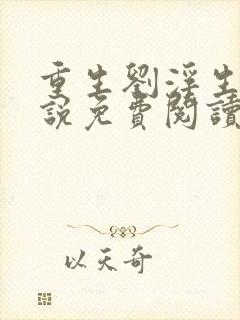 重生劉淫生
說免費閱讀
以天奇